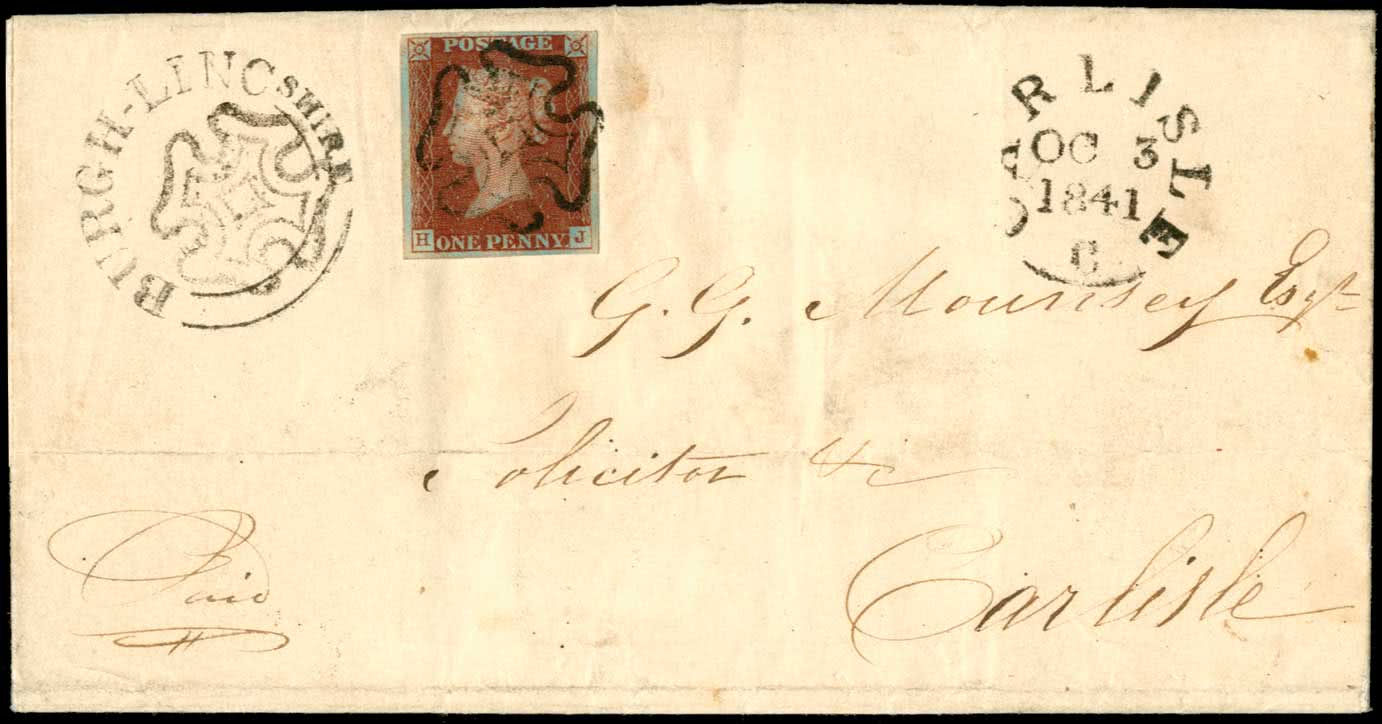 BURGH-LINCSHIRE
POSTAGE
H ONE PENNY J
CARLISLE
OC 3
1841
C
G. G. Mounsey Esqr
Solicitor &c
Carlisle
Paid